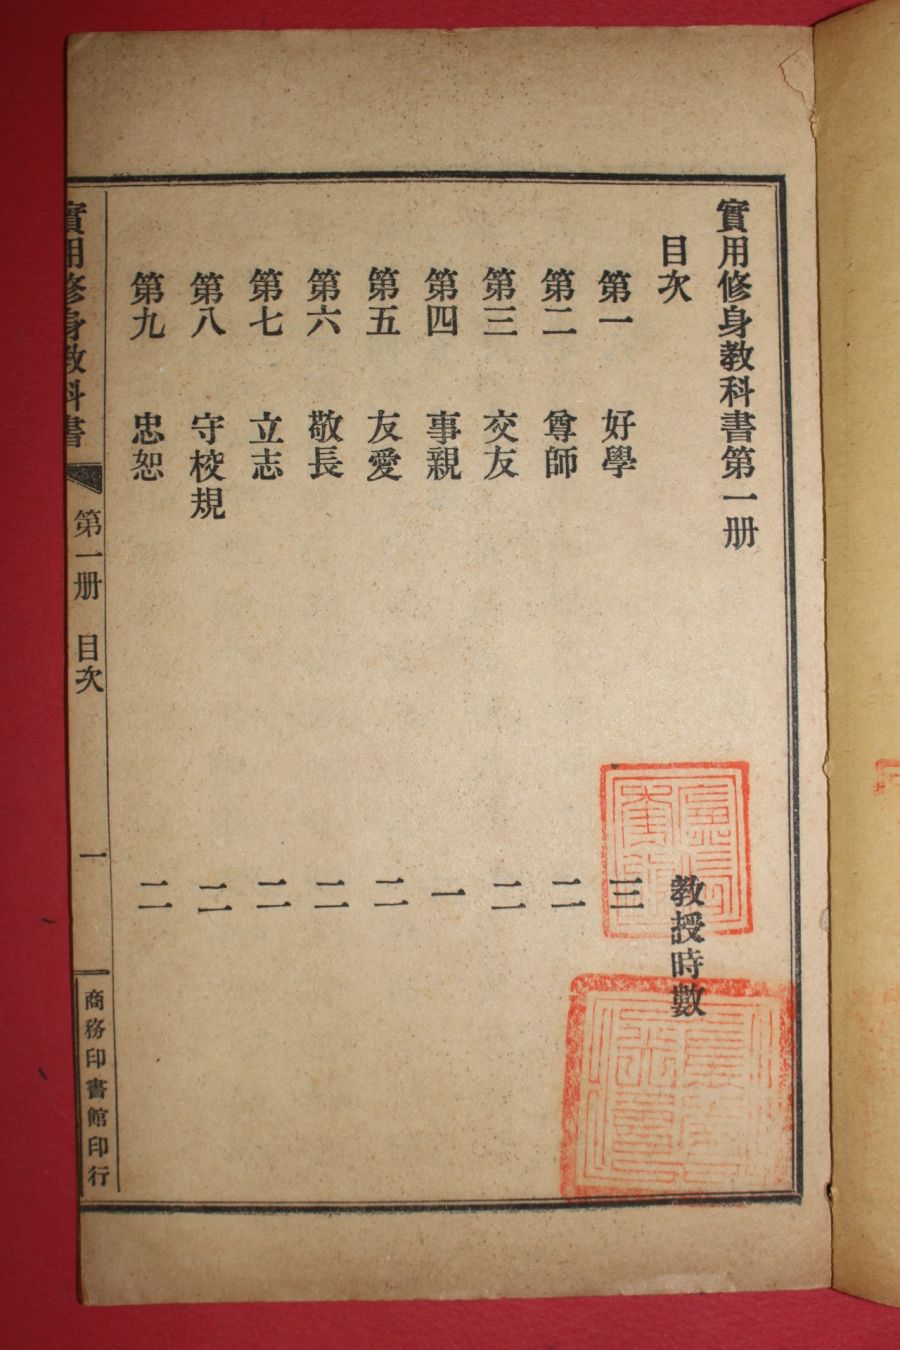 實用修身教科書第一册
目次
教授時數
第一 好學 三
第二 尊師 二
第三 交友 二
第四 事親 一
第五 友愛 二
第六 敬長 二
第七 立志 二
第八 守校規 二
第九 忠恕 二
實用修身教科書 第一册 目次 一 商務印書館印行